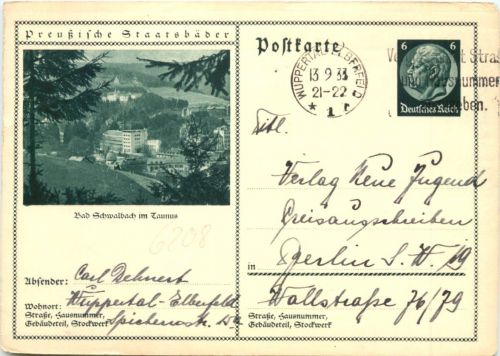 Preußische Staatsbäder
Bad Schwalbach im Taunus
6208
Absender: Carl Dehnert
Wohnort: Wuppertal-Elberfeld
Straße, Hausnummer,
Gebäudeteil, Stockwerk
Postkarte
WUPPERTAL-ELBERFELD
13.9.33
21-22
* 1 r
6 6
Deutsches Reich
Stra
Hausnummer
eben.
Titl.
Verlag Neue Jugend
Preisausschreiben
in Berlin S.W. 19
Wallstraße 76/79
Straße, Hausnummer,
Gebäudeteil, Stockwerk